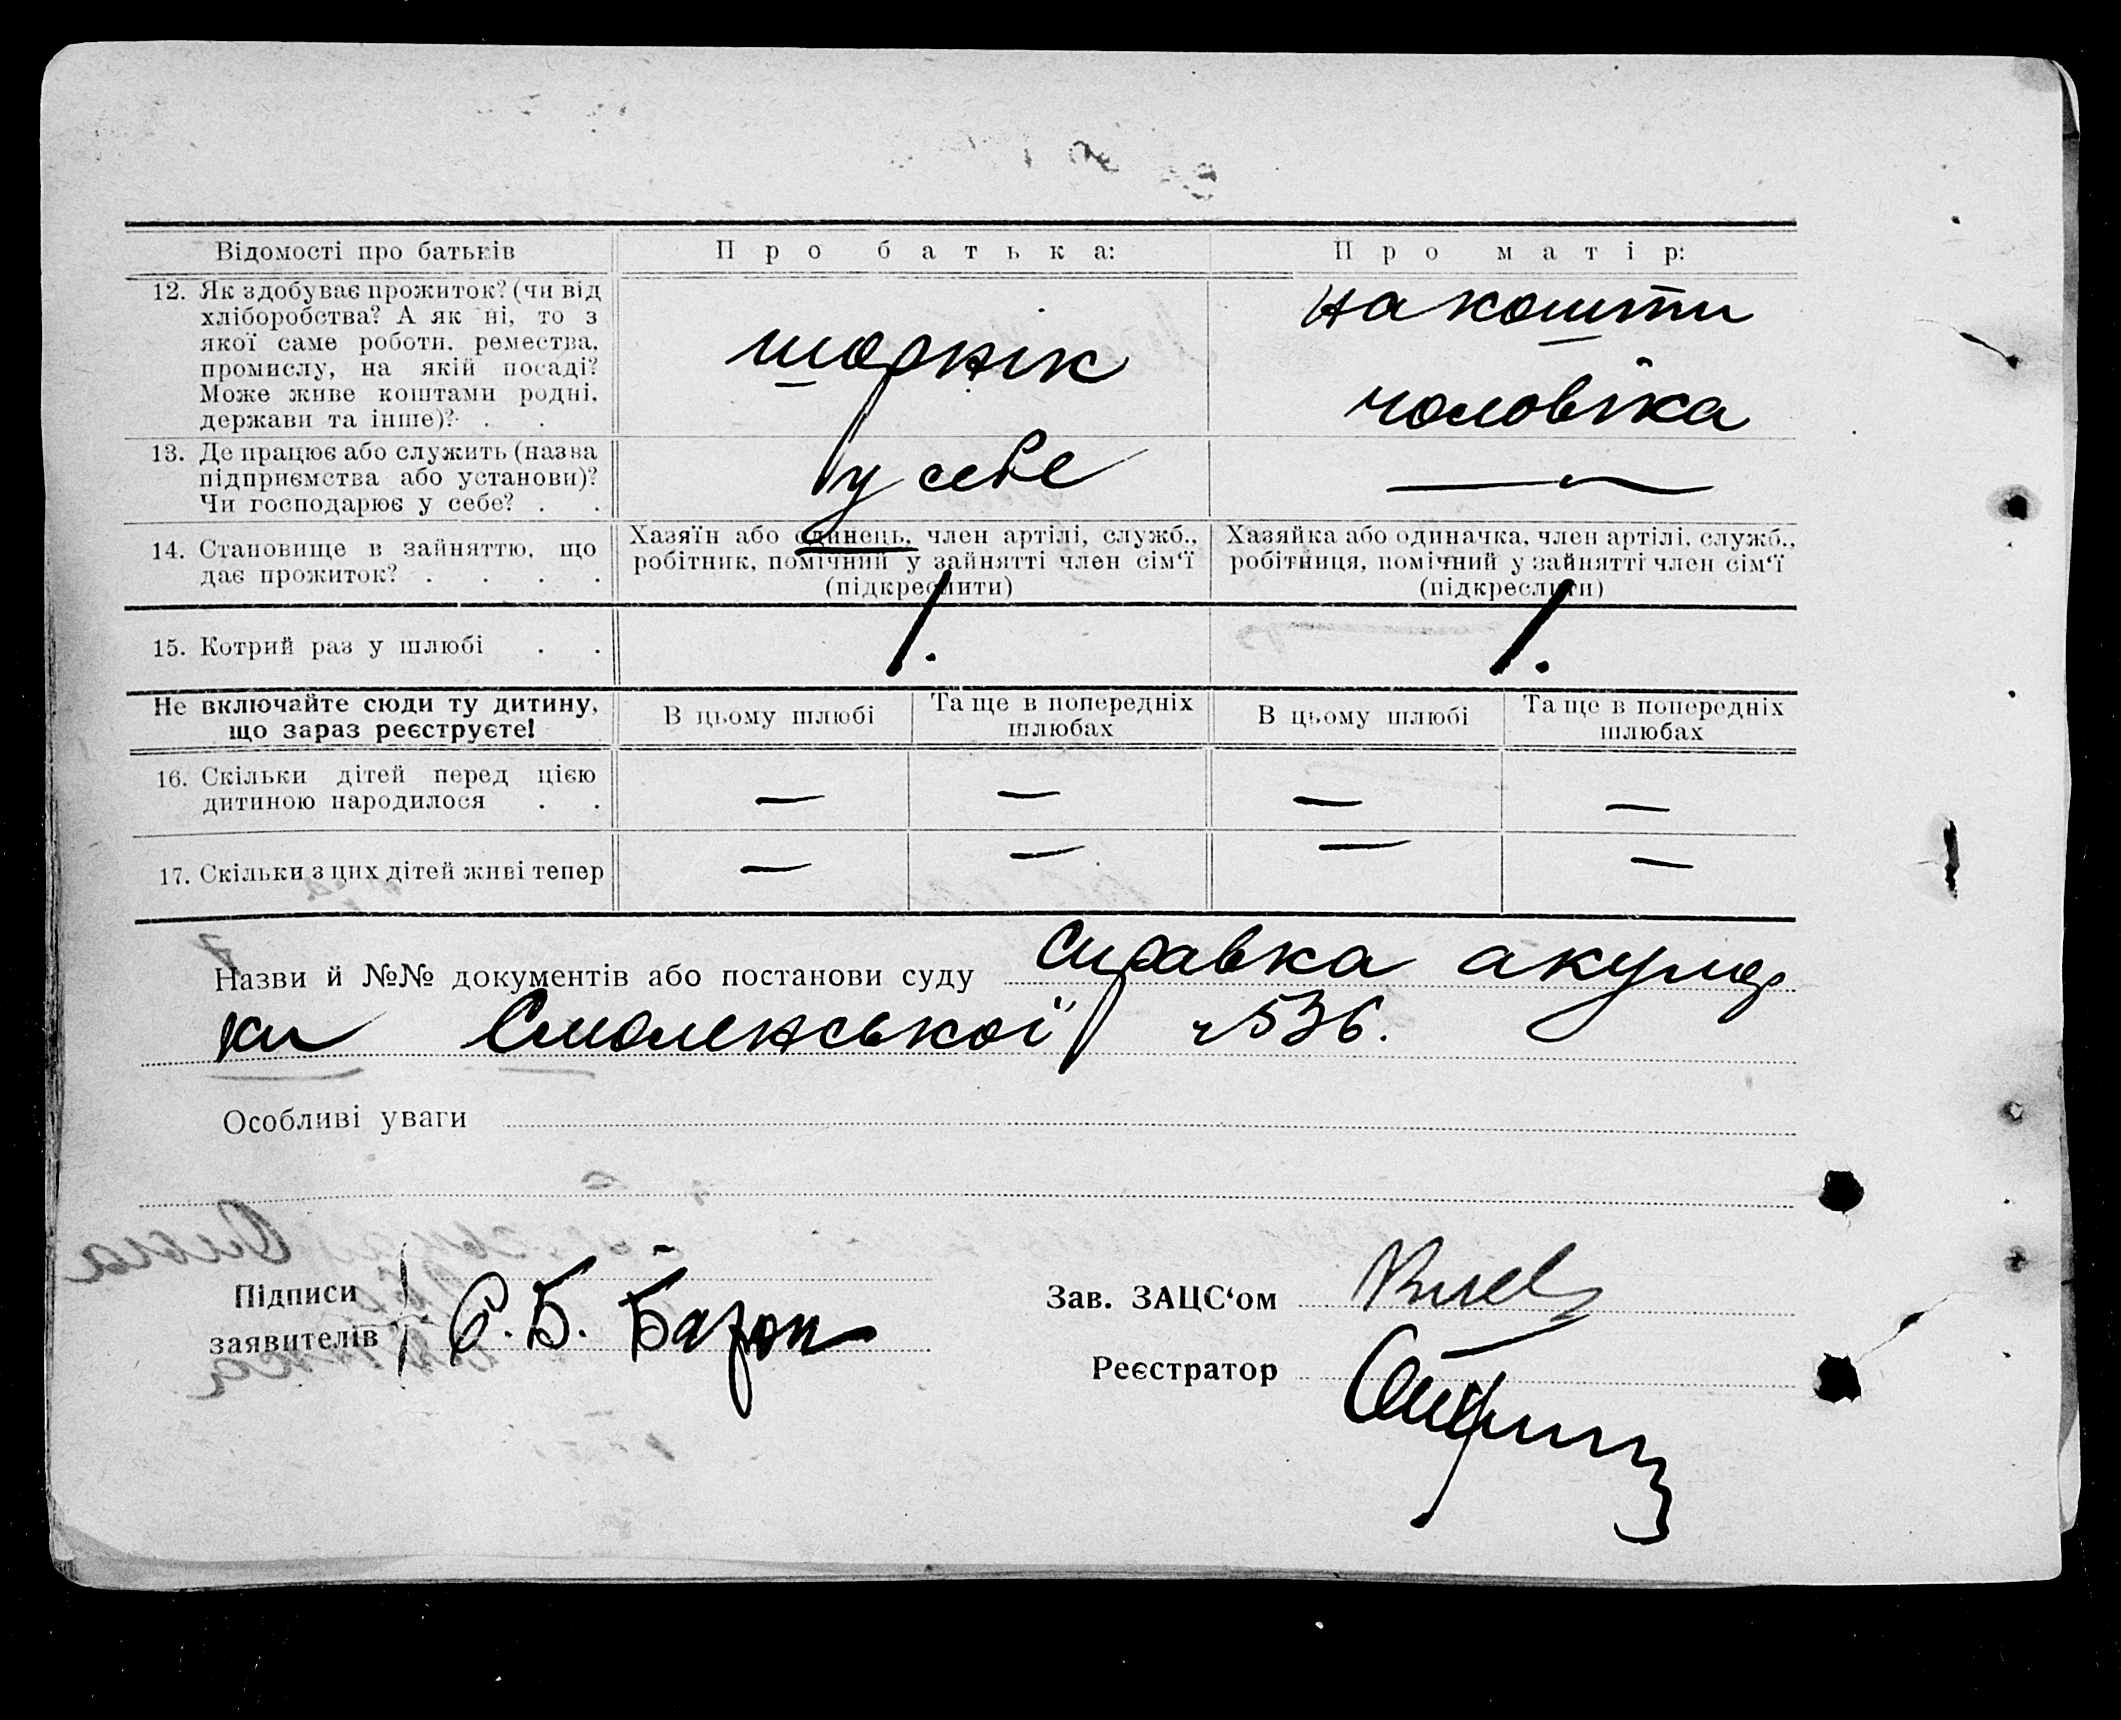 Відомості про батьків
Про батька:
Про матір:
12. Як здобуває прожиток? (чи від
хліборобства? А як ні, то з
якої саме роботи, ремества,
промислу, на якій посаді?
Може живе коштами родні,
держави та інше)? . .
шорнік
на кошти
чоловіка
13. Де працює або служить (назва
підприємства або установи)?
Чи господарює у себе? . .
у себе
—
14. Становище в зайняттю, що
дає прожиток? . . . .
Хазяїн або одинець, член артілі, служб.,
робітник, помічний у зайнятті член сім‘ї
(підкреслити)
Хазяйка або одиначка, член артілі, служб.,
робітниця, помічний у зайнятті член сім‘ї
(підкреслити)
15. Котрий раз у шлюбі . .
1.
1.
Не включайте сюди ту дитину,
що зараз реєструєте!
В цьому шлюбі
Та ще в попередніх
шлюбах
В цьому шлюбі
Та ще в попередніх
шлюбах
16. Скільки дітей перед цією
дитиною народилося . .
— — — —
17. Скільки з цих дітей живі тепер
— — — —
Назви й №№ документів або постанови суду справка акушер
ки Смоленської ч 536.
Особливі уваги
Підписи
заявителів
С. Б. Базон
Зав. ЗАЦС‘ом
Реєстратор